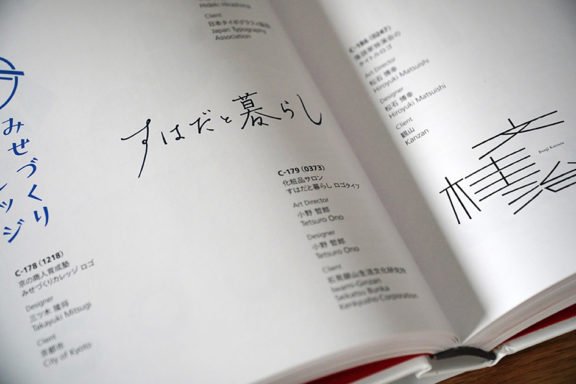 Client
日本タイポグラフィ協会
Japan Typography
Association
みせづくり
すはだと暮らし
C-179 (0373)
化粧品サロン
すはだと暮らし ロゴタイプ
Art Director
小野 哲郎
Tetsuro Ono
Designer
小野 哲郎
Tetsuro Ono
Client
石見銀山生活文化研究所
Iwami-Ginzan
Seikatsu Bunka
Kenkyusho Corporation
C-178 (1218)
京の商人育成塾
みせづくりカレッジ ロゴ
Designer
三ツ木 隆将
Takayuki Mitsugi
Client
京都市
City of Kyoto
Art Director
松石 博幸
Hiroyuki Matsuishi
Designer
松石 博幸
Hiroyuki Matsuishi
Client
観山
Kanzan